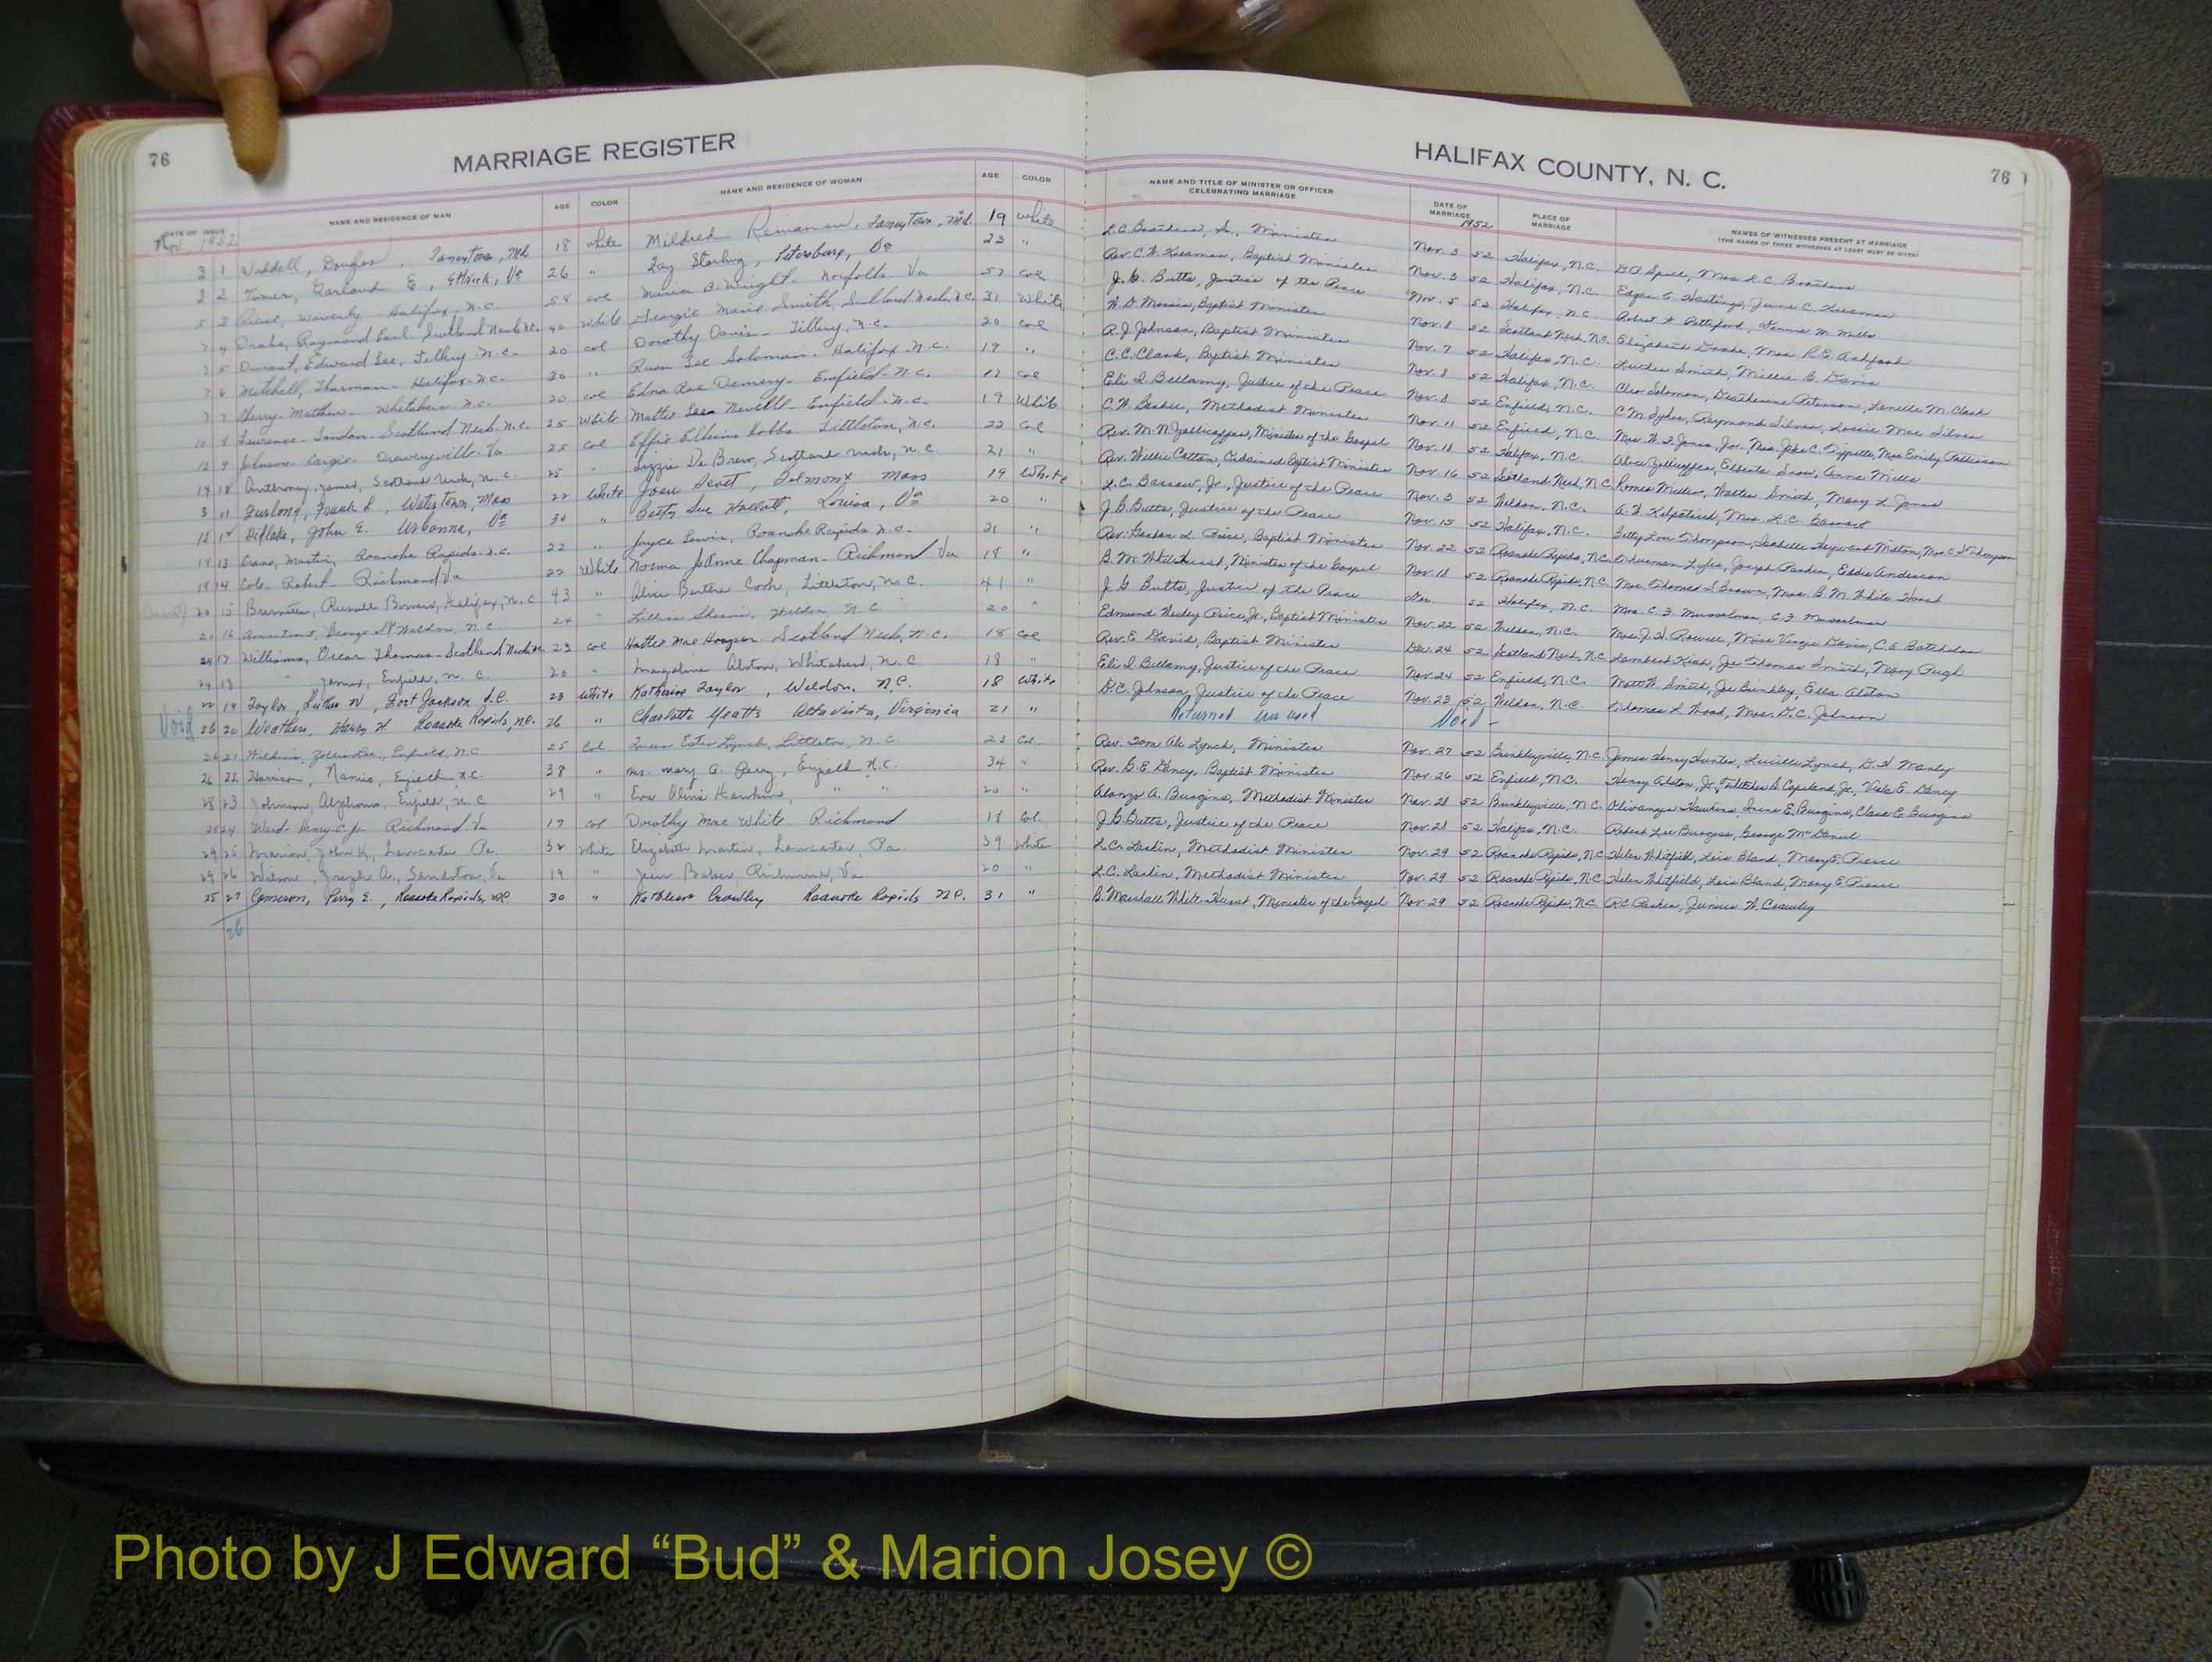 76
MARRIAGE REGISTER
HALIFAX COUNTY, N. C.
76
DATE OF ISSUE NAME AND RESIDENCE OF MAN AGE COLOR NAME AND RESIDENCE OF WOMAN AGE COLOR
NAME AND TITLE OF MINISTER OR OFFICER CELEBRATING MARRIAGE DATE OF MARRIAGE PLACE OF MARRIAGE NAMES OF WITNESSES PRESENT AT MARRIAGE
(THE NAMES OF THREE WITNESSES AT LEAST MUST BE GIVEN)
Nov 1952
1952
3 1 Waddell, 18 white Mildred 19 White
3 2 Garland E, Va 26 " Fay Petersburg, Va 23 "
5 3 Waverly Halifax, N.C. 58 col B. Wright Norfolk Va 57 col
7 4 Drake, Raymond Earl, Scotland Neck N.C. 40 White Georgie Marie Smith, Scotland Neck, N.C. 31 White
7 5 Edward Lee, Tillery N.C. 20 col Dorothy Davis - Tillery, N.C. 20 col
7 6 Mitchell, Thurman - Halifax N.C. 30 " Solomon - Halifax N.C. 19 "
7 7 Cherry - Whitakers N.C. 20 col Edna Rae Demery - Enfield N.C. 17 col
10 8 Lawrence - Landon - Scotland Neck N.C. 25 White Mattie Lee Neville - Enfield - N.C. 19 White
12 9 Johnson - Drewryville Va 25 col Effie Elkins Hobbs Littleton, N.C. 22 col
14 10 Anthony, James, Scotland Neck, N.C. 25 " Lizzie De Brew, Scotland Neck, N.C 21 "
3 11 Furlong, Frank L, Watertown, Mass 22 White Joan Scott, Belmont Mass 19 White
15 12 John E. Urbanna, Va 30 " Betty Sue Louisa, Va 20 "
18 13 Crane, Martin, Roanoke Rapids N.C. 22 " Joyce Lewis, Roanoke Rapids N.C. 21 "
18 14 Cole - Robert - Richmond Va 22 White Norma JoAnne Chapman - Richmond Va 18 "
20 15 Russell Bowers, Halifax, N.C 43 " Alice Bertha Cook, Littleton, N.C. 41 "
21 16 George Weldon, N.C 24 " Lillian Weldon, N.C. 20 "
24 17 Williams, Oscar Thomas - Scotland Neck N.C. 23 col Hattie Mae Scotland Neck, N.C. 18 col
24 18 " James, Enfield, N.C. 20 " Magdaline Alston, Whitakers, N.C 18 "
22 19 Taylor, Luther W, Fort Jackson S.C. 28 White Katherine Taylor, Weldon, N.C. 18 White
Void 26 20 Weathers, Harry H Roanoke Rapids, N.C. 26 " Charlotte Yeatts Altavista, Virginia 21 "
26 21 Wilkins, Enfield, N.C 25 Col Esther Lynch, Littleton, N.C. 23 Col.
26 22 Harrison, Enfield N.C. 38 " Mrs. Mary A. Perry, Enfield N.C. 34 "
28 23 Johnson, Alphonso, Enfield, N.C 29 " Eva Olivia Hawkins, " " 20 "
28 24 Ward - Henry C. Jr. Richmond Va 19 col Dorothy Mae White Richmond 18 Col.
29 25 Marion, John K., Lancaster Pa. 32 White Elizabeth Martin, Lancaster, Pa. 39 White
29 26 Wilson, Joseph A., Sandston, Va 19 " Jean Baker Richmond, Va. 20 "
25 27 Cameron, Perry E., Roanoke Rapids, N.C. 30 " Kathleen Crawley Roanoke Rapids N.C. 31 "
26
L.C. Sr., Minister Nov. 3 52 Halifax, N.C. Mrs L.C.
Rev. C.W. Baptist Minister Nov. 3 52 Halifax, N.C. Edgar E. Hastings, June C.
J.G. Butts, Justice of the Peace Nov. 5 52 Halifax, N.C. Robert H. Pettiford, Fannie M. Mills
W.D. Morris, Baptist Minister Nov. 8 52 Scotland Neck, N.C. Elizabeth Drake, Mrs. R.E. Ashford
A.J. Johnson, Baptist Minister Nov. 7 52 Halifax, N.C. Smith, Millie B. Davis
C.C. Clark, Baptist Minister Nov. 8 52 Halifax, N.C. Cleo Solomon, Peterson, M. Clark
Eli D. Bellamy, Justice of the Peace Nov. 8 52 Enfield, N.C. C.M. Sykes, Raymond Silver, Mae Silver
C.W. Methodist Minister Nov. 11 52 Enfield, N.C. Mrs. W.F. Jones, Jr., Mrs. Jake C. Tippette, Mrs Emily Patterson
Rev. M.N. Zollicoffer, Minister of the Gospel Nov. 18 52 Halifax, N.C. Alice Zollicoffer, Snow, Anna Mills
Rev. Willie Cotton, Ordained Baptist Minister Nov. 16 52 Scotland Neck, N.C. Romeo Walter Smith, Mary L. Jones
L.C. Jr., Justice of the Peace Nov. 3 52 Weldon, N.C. A.W. Kilpatrick, Mrs. L.C.
J.G. Butts, Justice of the Peace Nov. 15 52 Halifax, N.C. Betty Lou Thompson, Isabelle Hayward Milton, Mrs. C.F. Thompson
Rev. L. Price, Baptist Minister Nov. 22 52 Roanoke Rapids, N.C. Thurman Joseph Parker, Eddie Anderson
B.M. White Hurst, Minister of the Gospel Nov. 18 52 Roanoke Rapids, N.C. Mrs. Thomas S. Brown, Mrs. B.M. White Hurst
J.G. Butts, Justice of the Peace 52 Halifax, N.C. Mrs. C.F. Musselman, C.F. Musselman
Edmund Wesley Price, Jr., Baptist Minister Nov. 22 52 Weldon, N.C. Mrs. J.H. Rowell, Miss Davis, C.A. Batchelor
Rev. E. David, Baptist Minister 24 52 Scotland Neck, N.C. Thomas Smith, Mary Pugh
Eli D. Bellamy, Justice of the Peace Nov. 24 52 Enfield, N.C. Smith, Joe Brinkley, Ella Alston
D.C. Johnson, Justice of the Peace Nov. 23 52 Weldon, N.C. Thomas L. Hood, Mrs. D.C. Johnson
Returned un used Void -
Rev. Tom Ah Lynch, Minister Nov. 27 52 Brinkleyville, N.C. James Henry Hunter, Lucille Lynch, D.H. Manly
Rev. G.E. Dancy, Baptist Minister Nov. 26 52 Enfield, N.C. Henry Alston, Jr., Fletcher B. Copeland, Jr., Viola E. Dancy
Alonzo A. Burgins, Methodist Minister Nov. 28 52 Brinkleyville, N.C. Hawkins, Irene E. Burgins, E. Burgins
J.G. Butts, Justice of the Peace Nov. 28 52 Halifax, N.C. Robert Lee Burgess, George McDaniel
L.C. Larkin, Methodist Minister Nov. 29 52 Roanoke Rapids, N.C. Helen Whitfield, Lois Bland, Mary E. Pierce
L.C. Larkin, Methodist Minister Nov. 29 52 Roanoke Rapids, N.C. Helen Whitfield, Lois Bland, Mary E. Pierce
B. Marshall White Hurst, Minister of the Gospel Nov. 29 52 Roanoke Rapids, N.C. R.C. Parker, Junius W. Crawley
Photo by J Edward “Bud” & Marion Josey ©